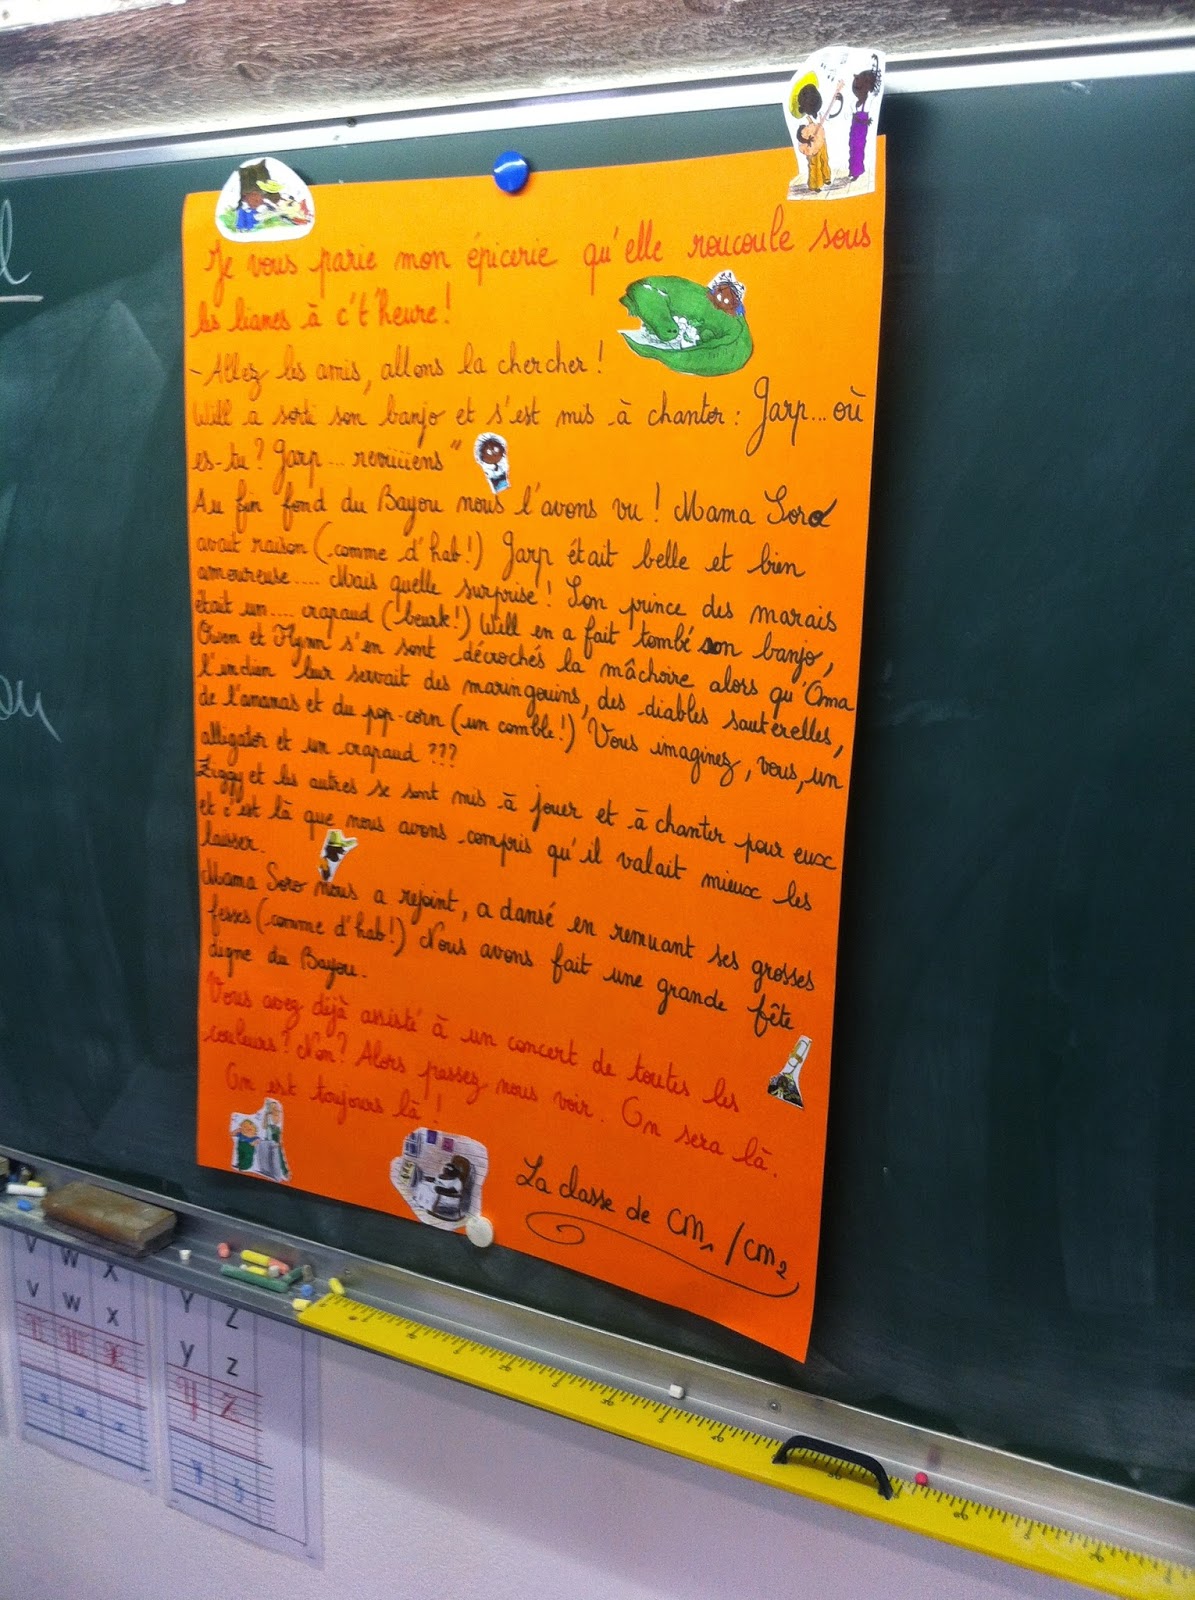 Je vous parie mon épicerie qu'elle roucoule sous
les lianes à c't'heure !
- Allez les amis, allons la chercher !
Will a sorti son banjo et s'est mis à chanter : Garp... où
es-tu ? Garp ... reviiiiens "
Au fin fond du Bayou nous l'avons vu ! Mama Soro
avait raison (comme d'hab !) Garp était belle et bien
amoureuse .... Mais quelle surprise ! Son prince des marais
était un .... crapaud (beurk !) Will en a fait tombé son banjo,
Owen et Flynn s'en sont décrochés la mâchoire alors qu'Oma
l'indien leur servait des maringouins, des diables sauterelles,
de l'ananas et du pop-corn (un comble !) Vous imaginez, vous, un
alligator et un crapaud ???
Ziggy et les autres se sont mis à jouer et à chanter pour eux
et c'est là que nous avons compris qu'il valait mieux les
laisser.
Mama Soro nous a rejoint, a dansé en remuant ses grosses
fesses (comme d'hab !) Nous avons fait une grande fête
digne du Bayou.
Vous avez déjà assisté à un concert de toutes les
couleurs ? Non ? Alors passez nous voir. On sera là.
On est toujours là !
La classe de CM1 / CM2
V W X
v w x
Y Z
y z